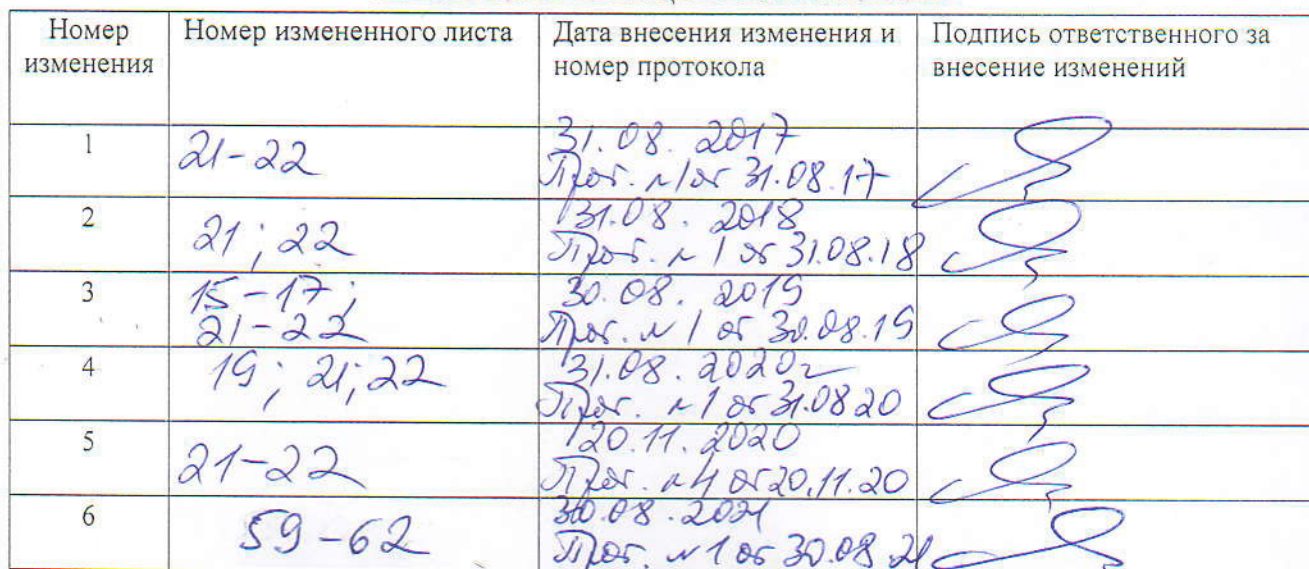 Номер изменения
Номер измененного листа
Дата внесения изменения и номер протокола
Подпись ответственного за внесение изменений
1
21-22
31.08.2017
Прот. №1 от 31.08.17
2
21; 22
31.08.2018
Прот. №1 от 31.08.18
3
15-17;
21-22
30.08.2019
Прот. №1 от 30.08.19
4
19; 21; 22
31.08.2020г
Прот. №1 от 31.08 20
5
21-22
20.11.2020
Прот. №4 от 20.11.20
6
59-62
30.08.2021
Прот. №1 от 30.08 21